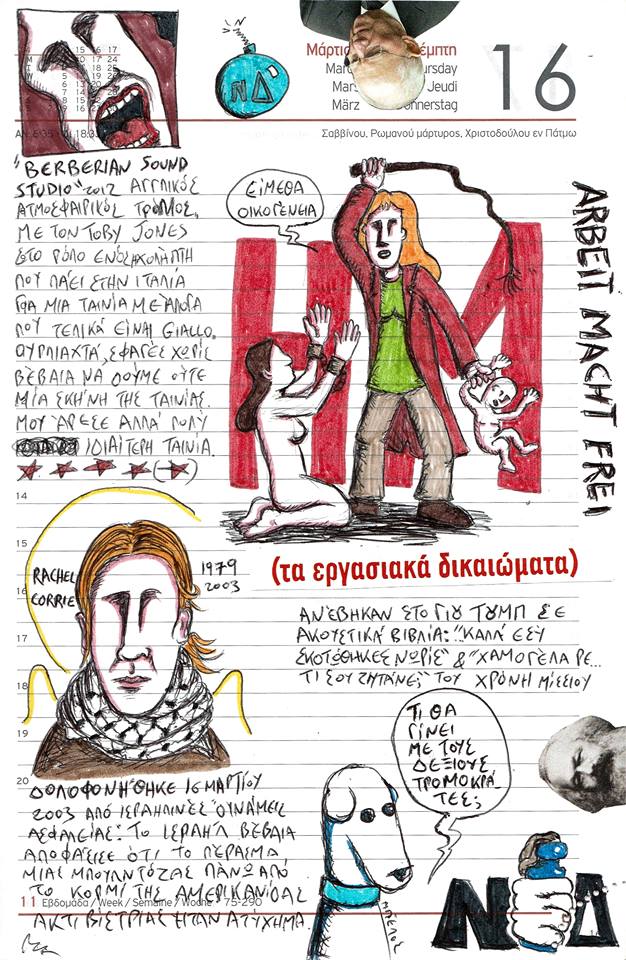 15 16 17
Μάρτιο
έμπτη
Marc
ursday
Mars
Jeudi
März
Donnerstag
16
ΝΔ
Σαββίνου, Ρωμανού μάρτυρος, Χριστοδούλου εν Πάτμω
"BERBERIAN SOUND
STUDIO" 2012 ΑΓΓΛΙΚΟΣ
ΑΤΜΟΣΦΑΙΡΙΚΟΣ ΤΡΟΜΟΣ,
ΜΕ ΤΟΝ TOBY JONES
ΣΤΟ ΡΟΛΟ ΕΝΟΣ ΗΧΟΛΗΠΤΗ
ΠΟΥ ΠΑΕΙ ΣΤΗΝ ΙΤΑΛΙΑ
ΓΙΑ ΜΙΑ ΤΑΙΝΙΑ ΜΕ ΑΛΟΓΑ
ΠΟΥ ΤΕΛΙΚΑ ΕΙΝΑΙ GIALLO.
ΟΥΡΛΙΑΧΤΑ, ΣΦΑΓΕΣ ΧΩΡΙΣ
ΒΕΒΑΙΑ ΝΑ ΔΟΥΜΕ ΟΥΤΕ
ΜΙΑ ΣΚΗΝΗ ΤΗΣ ΤΑΙΝΙΑΣ.
ΜΟΥ ΑΡΕΣΕ ΑΛΛΑ ΠΟΛΥ
ΙΔΙΑΙΤΕΡΗ ΤΑΙΝΙΑ.
ΕΙΜΕΘΑ
ΟΙΚΟΓΕΝΕΙΑ
HM
ARBEIT MACHT FREI
(τα εργασιακά δικαιώματα)
14
15
16
17
18
19
20
RACHEL
CORRIE
1979
2003
ΑΝΕΒΗΚΑΝ ΣΤΟ ΓΙΟΥ ΤΟΥΜΠ ΣΕ
ΑΚΟΥΣΤΙΚΑ ΒΙΒΛΙΑ: "ΚΑΛΑ ΕΣΥ
ΣΚΟΤΩΘΗΚΕΣ ΝΩΡΙΣ" & "ΧΑΜΟΓΕΛΑ ΡΕ...
ΤΙ ΣΟΥ ΖΗΤΑΝΕ;" ΤΟΥ ΧΡΟΝΗ ΜΙΣΣΙΟΥ
ΔΟΛΟΦΟΝΗΘΗΚΕ 16 ΜΑΡΤΙΟΥ
2003 ΑΠΟ ΙΣΡΑΗΛΙΝΕΣ ΔΥΝΑΜΕΙΣ
ΑΣΦΑΛΕΙΑΣ. ΤΟ ΙΣΡΑΗΛ ΒΕΒΑΙΑ
ΑΠΟΦΑΣΙΣΕ ΟΤΙ ΤΟ ΠΕΡΑΣΜΑ
ΜΙΑΣ ΜΠΟΥΛΝΤΟΖΑΣ ΠΑΝΩ ΑΠΟ
ΤΟ ΚΟΡΜΙ ΤΗΣ ΑΜΕΡΙΚΑΝΙΔΑΣ
ΑΚΤΙΒΙΣΤΡΙΑΣ ΗΤΑΝ ΑΤΥΧΗΜΑ.
11 Εβδομάδα / Week / Semaine / Woche 75-290
ΤΙ ΘΑ
ΓΙΝΕΙ
ΜΕ ΤΟΥΣ
ΔΕΞΙΟΥΣ
ΤΡΟΜΟΚΡΑ-
ΤΕΣ;
ΜΠΕΛΟΣ
ΝΔ